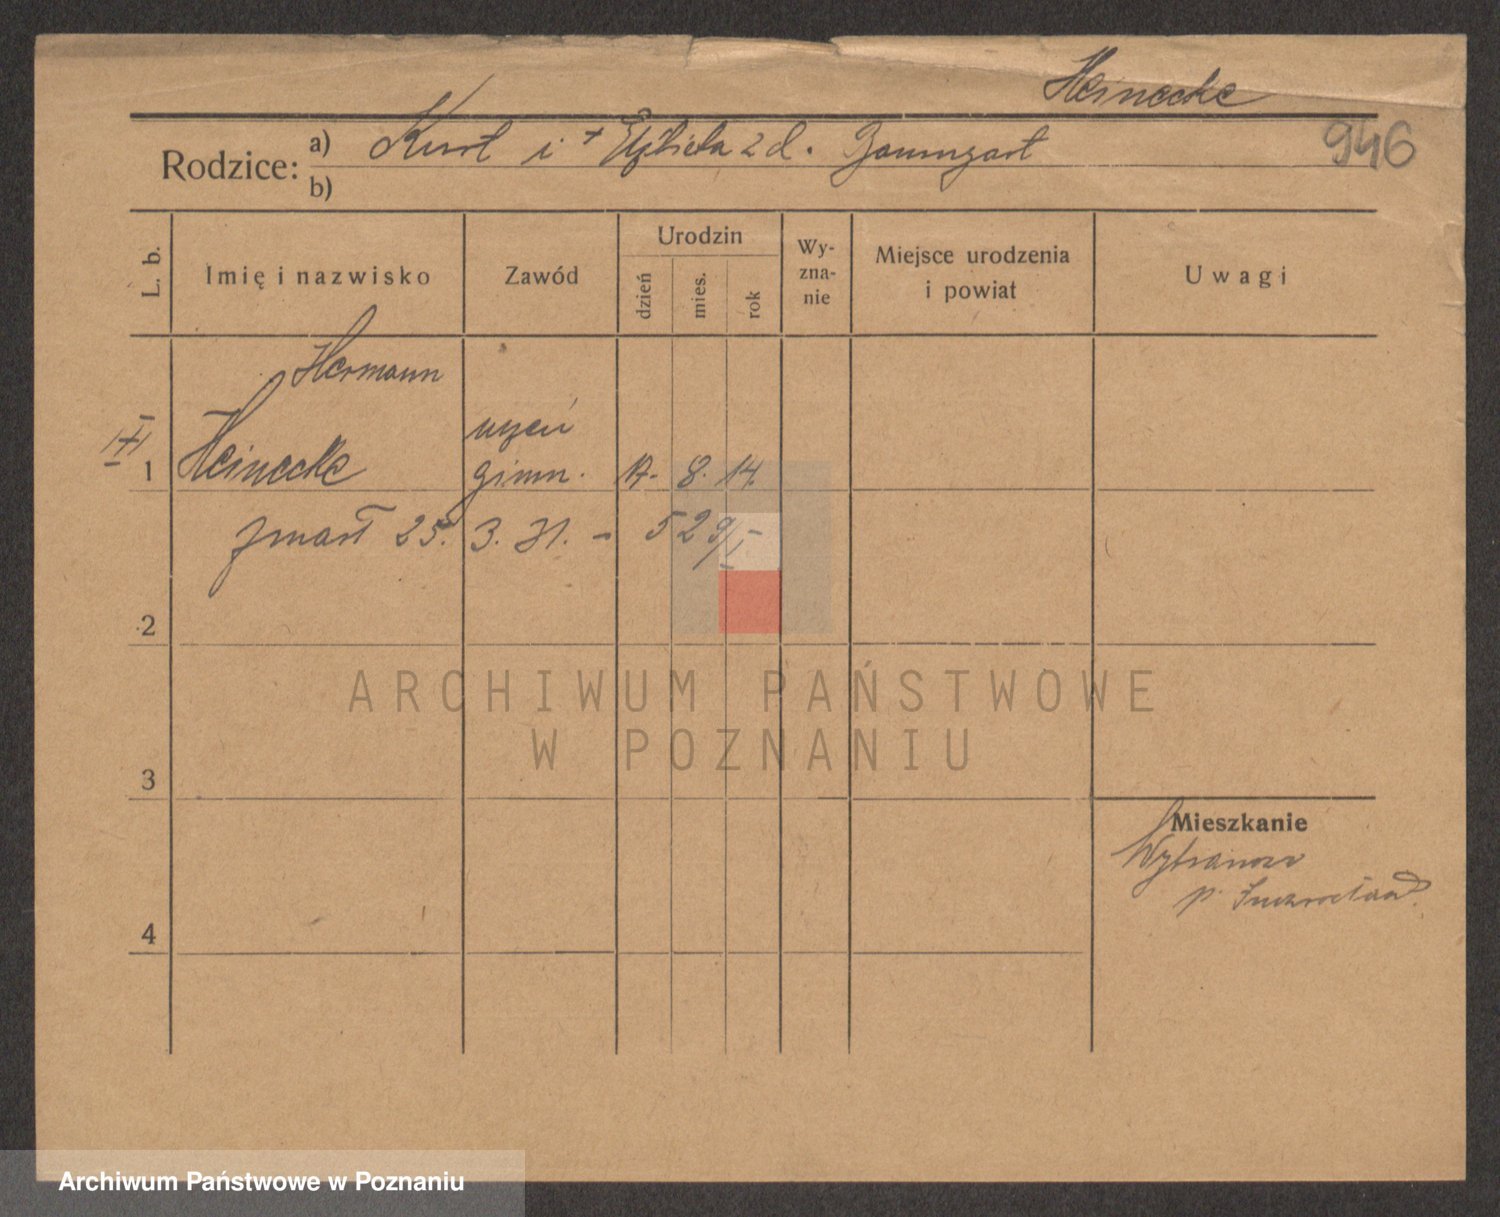 Heinecke
946
Rodzice: a) Kurt i + Elżbieta z d. Baumgart
b)
L. b. Imię i nazwisko Zawód Urodzin dzień mies. rok Wyznanie Miejsce urodzenia i powiat Uwagi
Hermann
1 Heinecke uczeń gimn. 17. 8. 14.
zmarł 25. 3. 31. - 529/I
2
3
4
Mieszkanie
Wybranowo
p. Inowrocław
ARCHIWUM PAŃSTWOWE
W POZNANIU
Archiwum Państwowe w Poznaniu